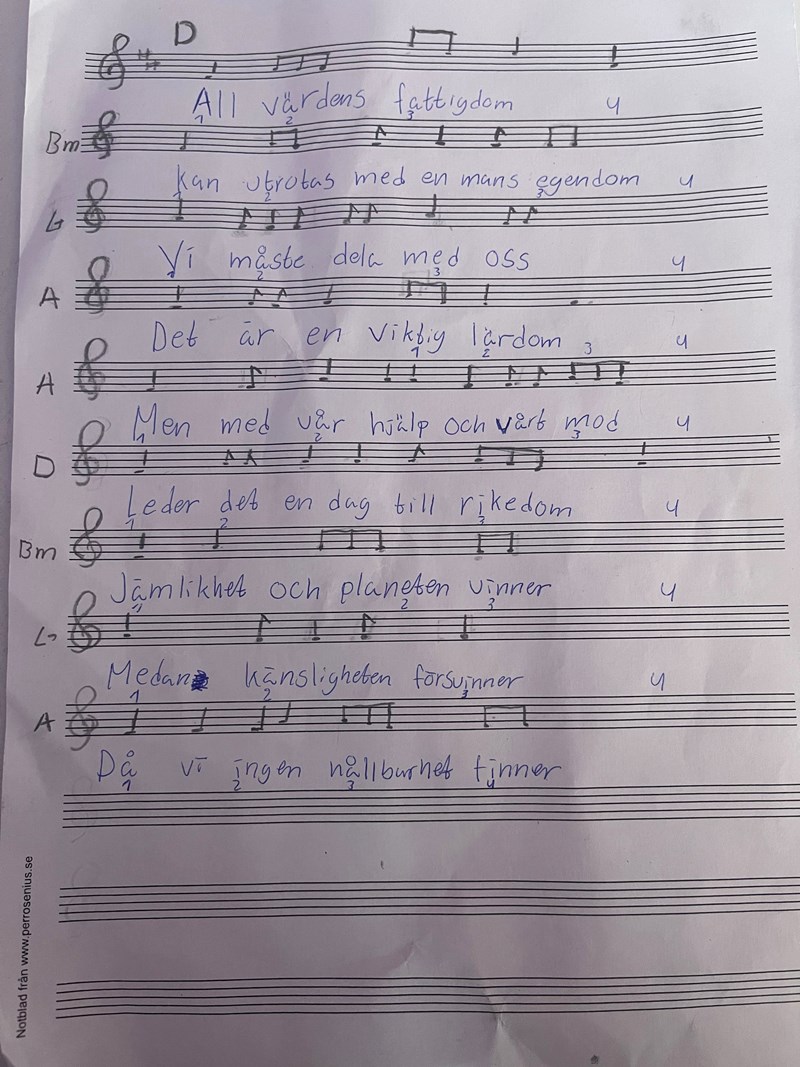 D
All världens fattigdom 4
1 2 3
Bm
Kan utrotas med en mans egendom 4
1 2 3
G
Vi måste dela med oss 4
1 2 3
A
Det är en viktig lärdom 4
1 2 3
A
Men med vår hjälp och vårt mod 4
1 2 3
D
Leder det en dag till rikedom 4
1 2 3
Bm
Jämlikhet och planeten vinner 4
1 2 3
G
Medan känsligheten försvinner 4
1 2 3
A
Då vi ingen hållbarhet finner
1 2 3 4
Notblad från www.perrosenius.se